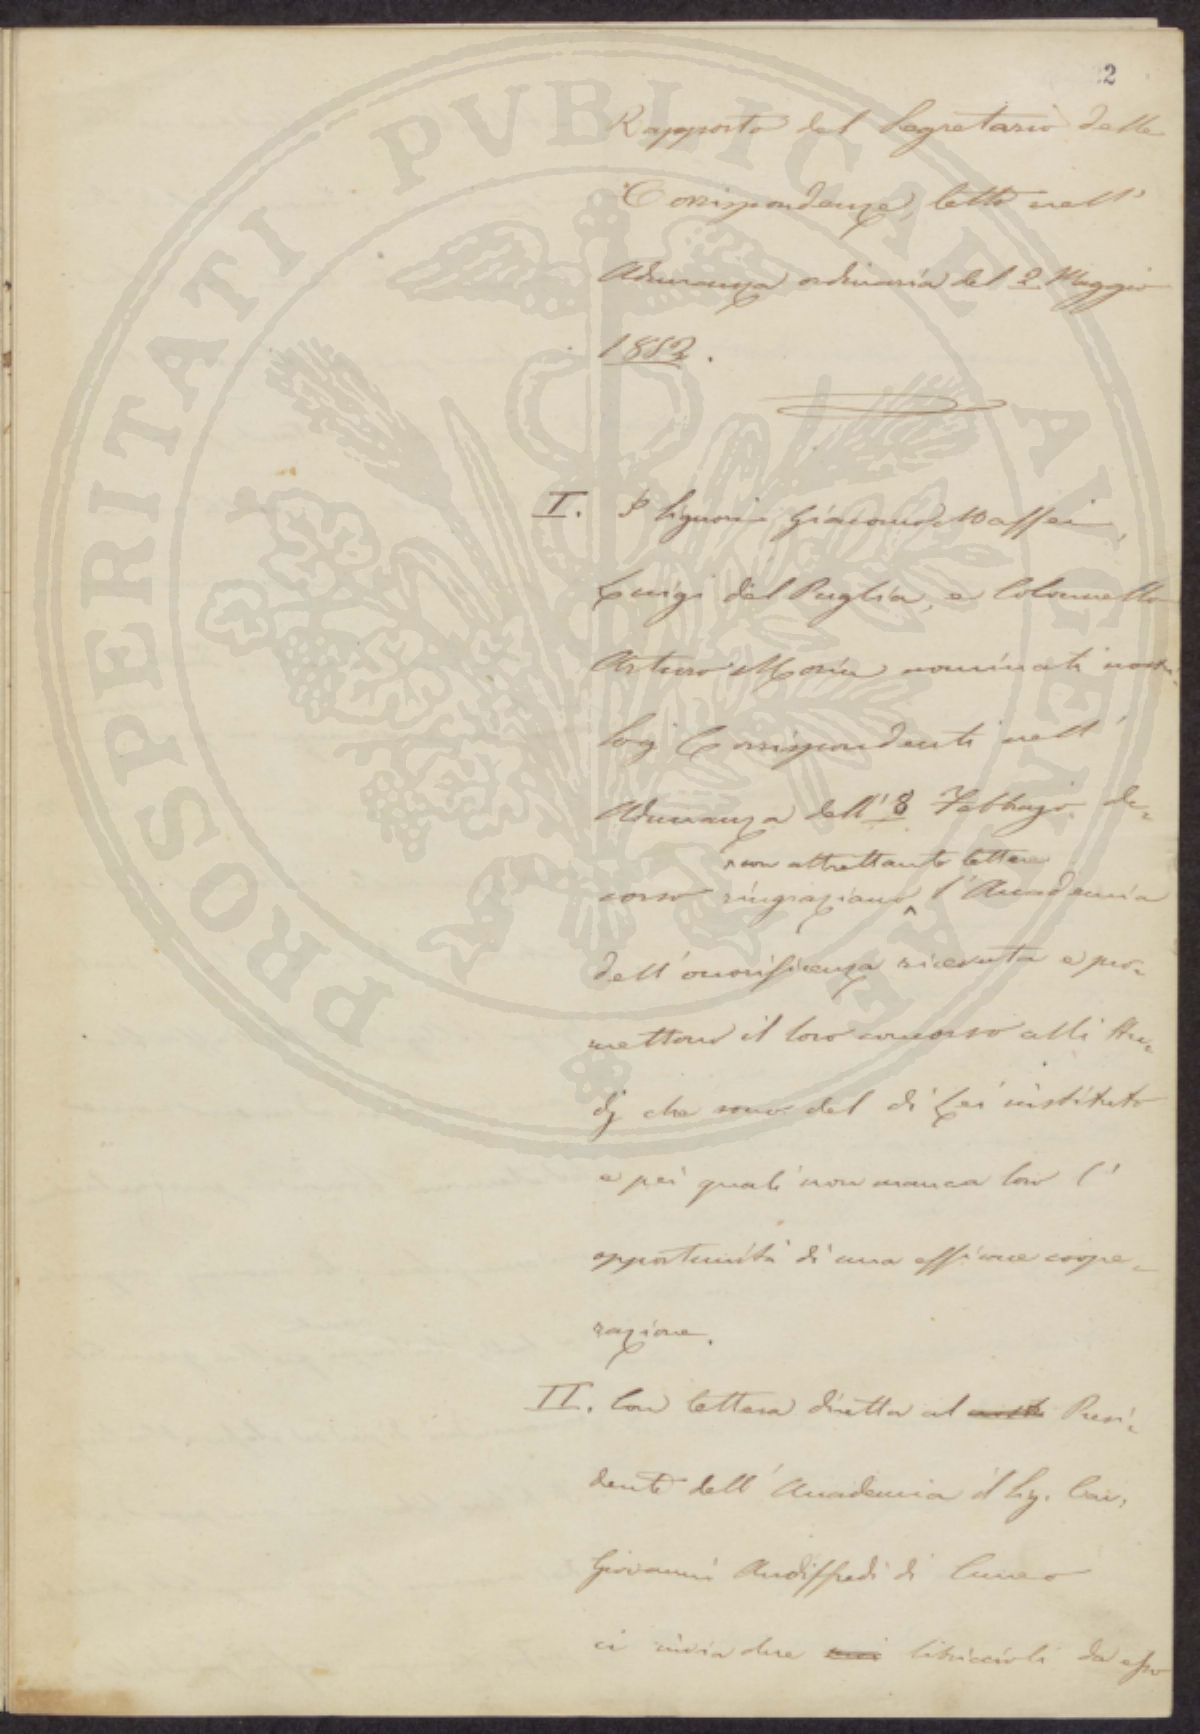 22
Rapporto del Segretario delle
Corrispondenze, letto nell'
Adunanza ordinaria del 2 Maggio
1882.
I. I Signori Giacomo Maffei,
Luigi del Puglia, e Colonnello
Arturo Morin nominati nostri
Soci Corrispondenti nell'
Adunanza dell' 8 Febbrajo de-
con altrettante lettere
corso ringraziano l'Accademia
dell'onorificenza ricevuta e pro-
mettono il loro concorso alli stu-
dj che sono del di Lei instituto
e pei quali non manca loro l'
opportunità di una efficace coope-
razione.
II. Con lettera diretta al Presi-
dente dell'Accademia il Sig. Cav.
Giovanni Audiffredi di Cuneo
ci invia due libriccioli da esso
PROSPERITATI PVBLICAE AVGENDAE